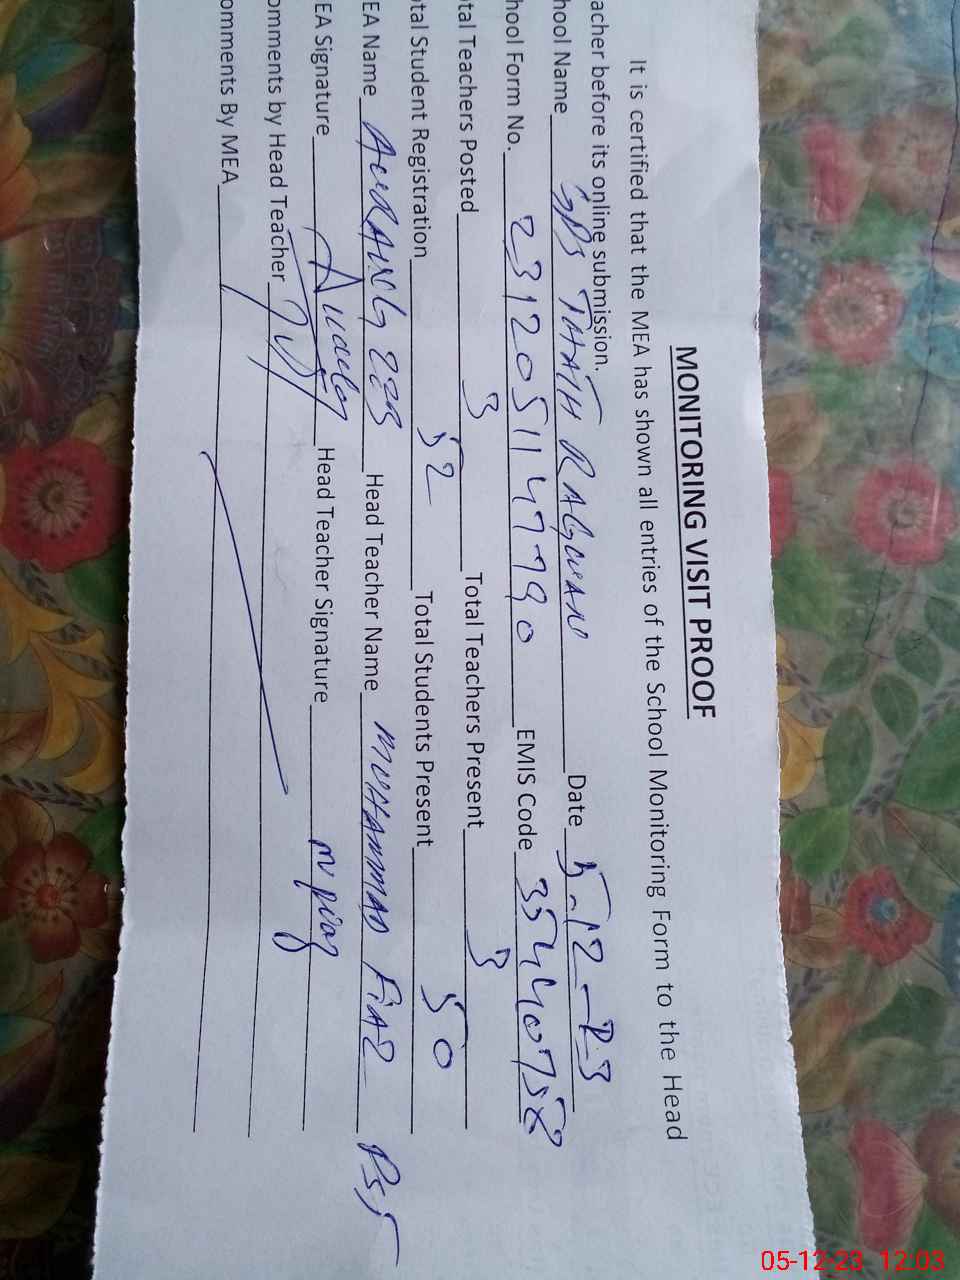 MONITORING VISIT PROOF
It is certified that the MEA has shown all entries of the School Monitoring Form to the Head
acher before its online submission.
hool Name GPS TAATH RAGWAN Date 5-12-23
hool Form No. 2312051147790 EMIS Code 35440758
tal Teachers Posted 3 Total Teachers Present 3
tal Student Registration 52 Total Students Present 50
EA Name AURANG ZEB Head Teacher Name MUHAMMAD FiAZ PST
EA Signature Head Teacher Signature
omments by Head Teacher
omments By MEA
05-12-23 12:03